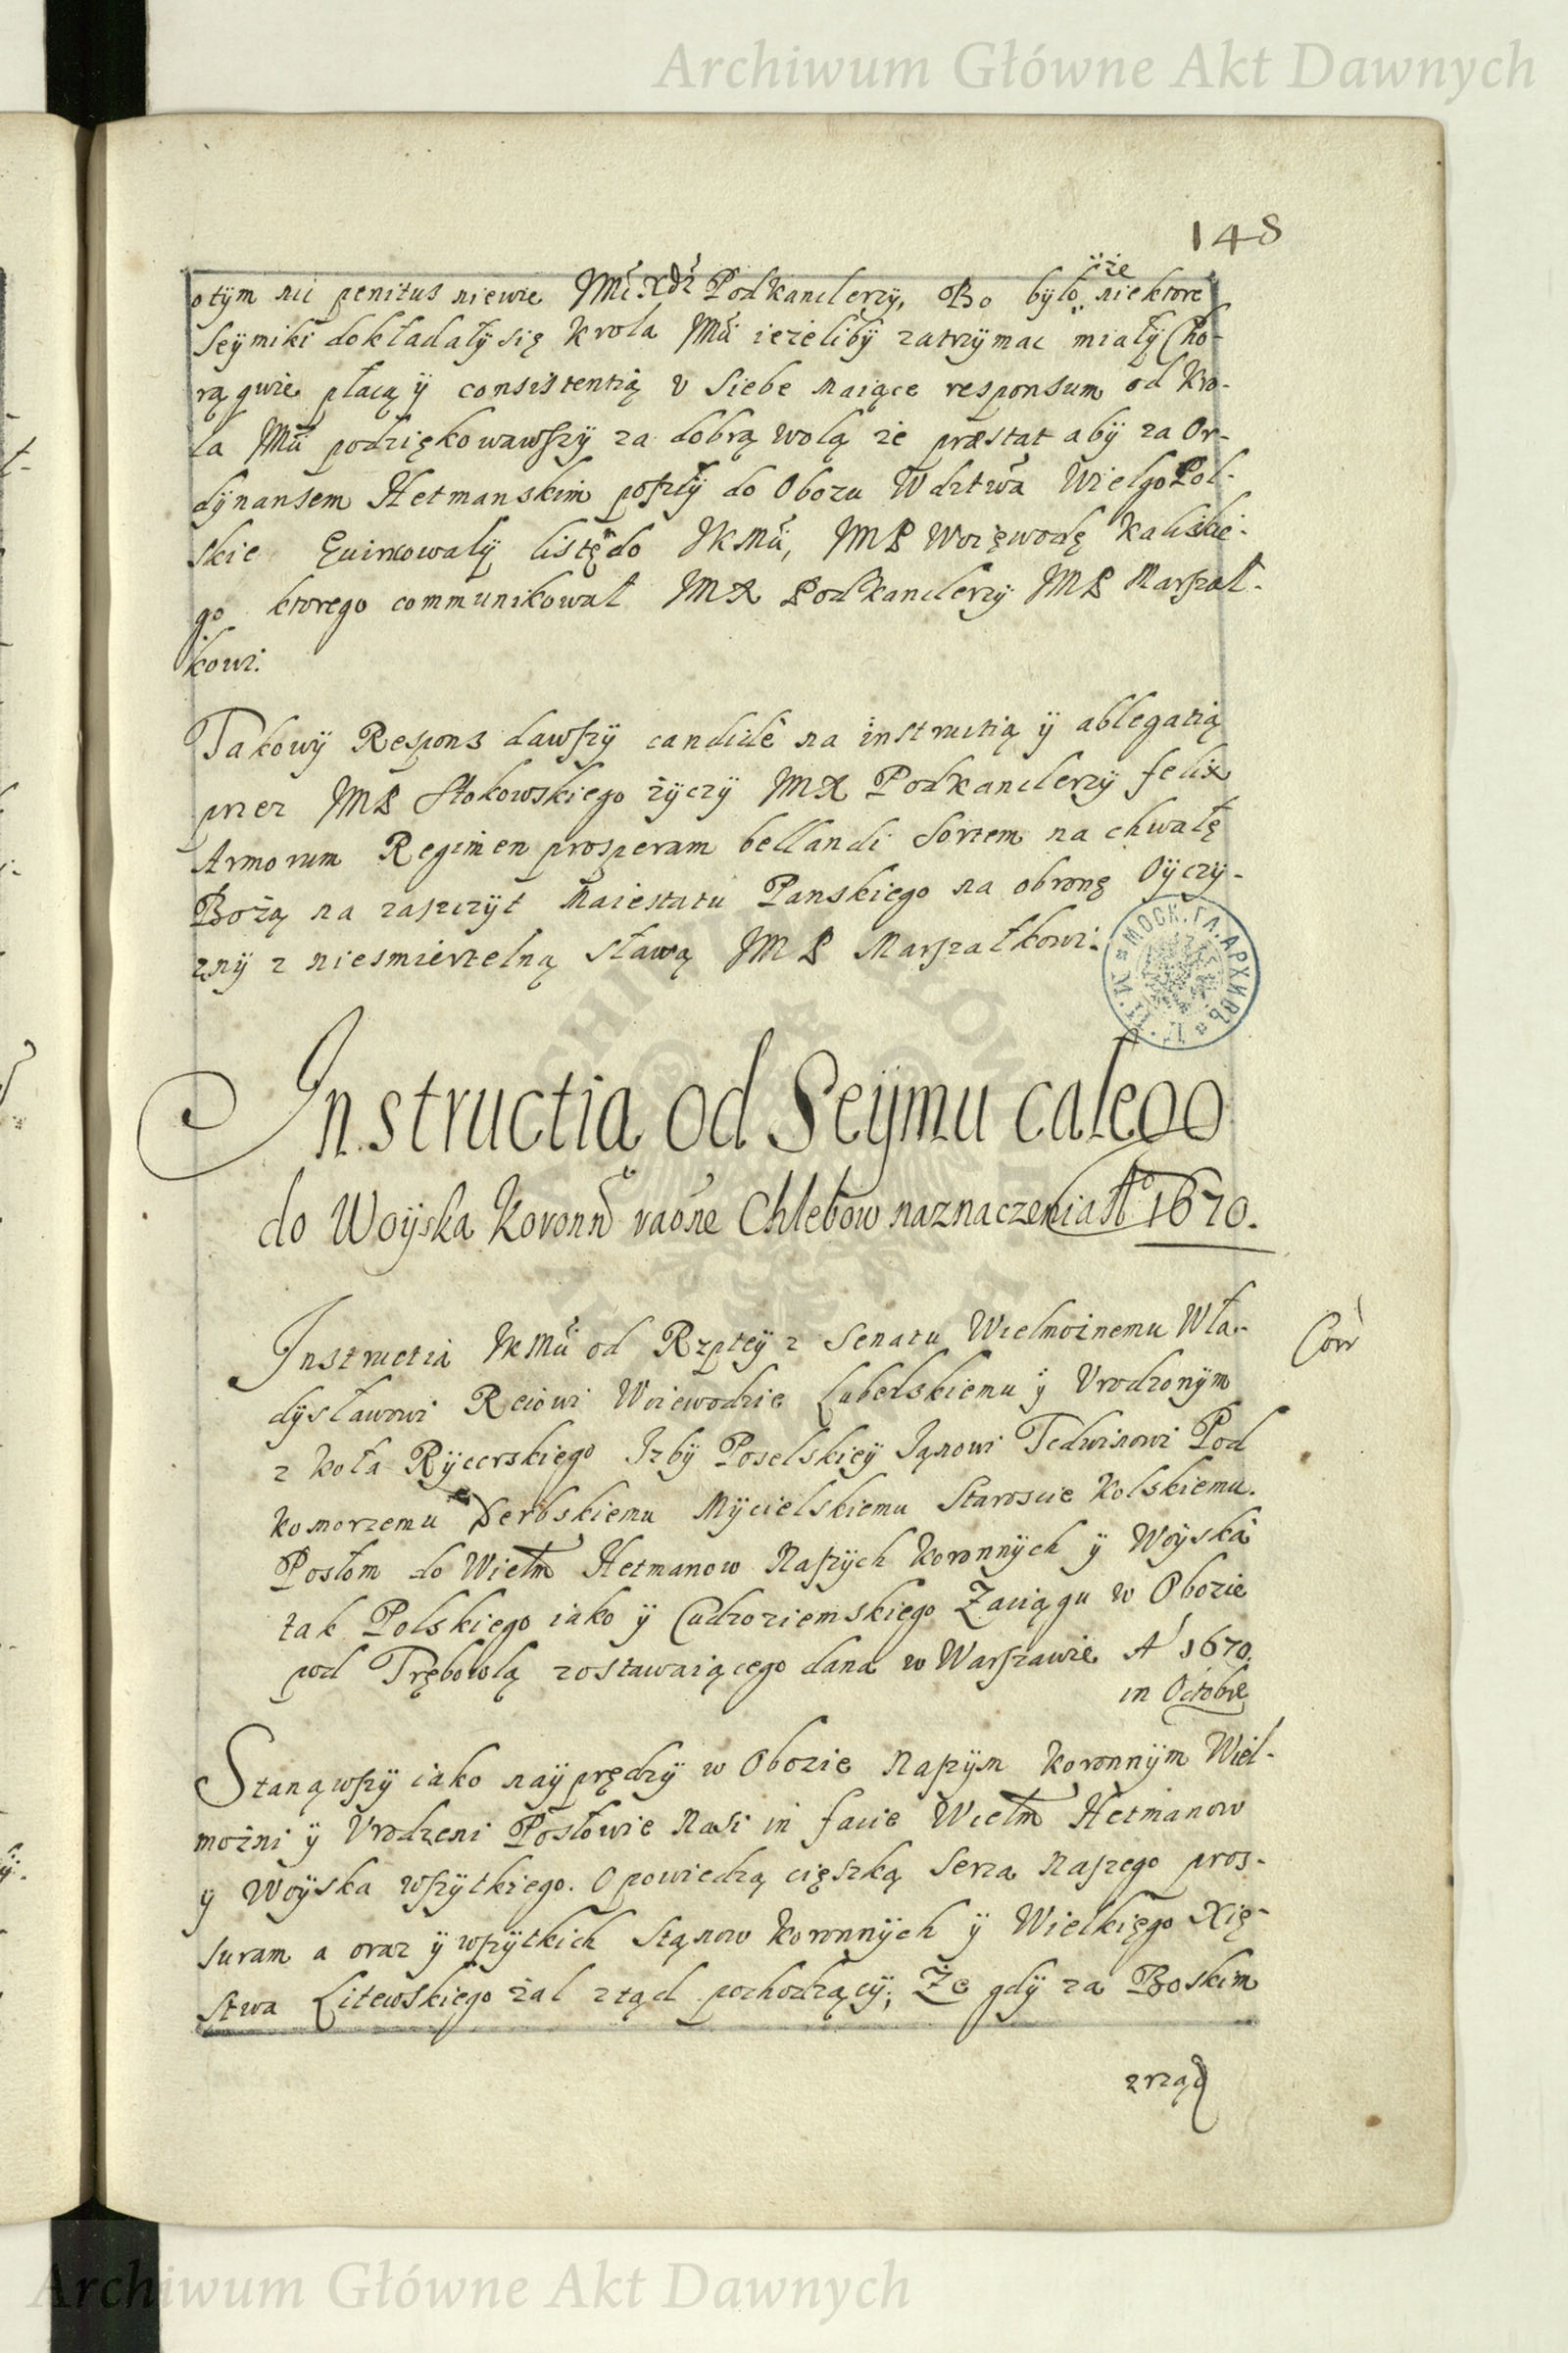 Archiwum Główne Akt Dawnych
148
o tÿm nic penitus niewie Jmći Xdz Podkanclerzÿ, Bo bÿło iże niektore
Seÿmiki dokładałÿ się Krola Jmći ieżelibÿ zatrzÿmac miałÿ Cho-
rągwie płacą ÿ consistentią v Siebie maiące responsum od Kro-
la Jmći podziękowawszÿ za dobrą wolą że præstat abÿ za Or-
dÿnansem Hetmanskim poszłÿ do Obozu Wdztwa WielgoPol-
skie listę do JKMći, JMP Woięwodę Kaliskie-
go ktorego communikował JMX Podkanclerzÿ JMP Marszał-
kowi.
Takowÿ Respons dawszÿ candidè na instructią ÿ ablegatią
przez JMP Stokowskiego życzÿ JMX Podkanclerzÿ felix
Armorum Regimen prosperam bellandi Sortem na chwałę
Bożą na zaszczÿt Maiestatu Panskiego na obronę Oÿczÿ-
znÿ z niesmiertelną sławą JMP Marszałkowi.
МОСК. ГЛ. АРХИВЪ
Instructia od Seÿmu całego
do Woÿska Koronn raõne Chlebow naznaczenia Aº 1670.
Instructia JKMći od Rzpteÿ z Senatu Wielmożnemu Wła-
dÿsławowi Reiowi Woiewodzie Lubelskiemu ÿ Vrodzonÿm
z Koła Rÿcerskiego Izbÿ Poselskieÿ Janowi Tedwinowi Pod
komorzemu Derbskiemu Mÿcielskiemu Staroscie Kolskiemu.
Posłom do Wielm Hetmanow Naszÿch Koronnÿch ÿ Woÿska
tak Polskiego iako ÿ Cudzoziemskiego Zaciągu w Obozie
pod Trębowlą zostawaiącego dana w Warszawie Aº 1670.
in Octobre
Stanąwszÿ iako naÿprędzÿ w Obozie Naszÿm Koronnÿm Wiel-
możni ÿ Vrodzeni Posłowie Nasi in facie Wielm Hetmanow
ÿ Woÿska wszÿtkiego. Opowiedzą cięszką Serca Naszego pres-
suram a oraz ÿ wszÿtkich Stanow Koronnÿch ÿ Wielkięgo Xię-
stwa Litewskiego żal ztąd pochodzącÿ; Że gdÿ za Boskim
zrząd
Archiwum Główne Akt Dawnych